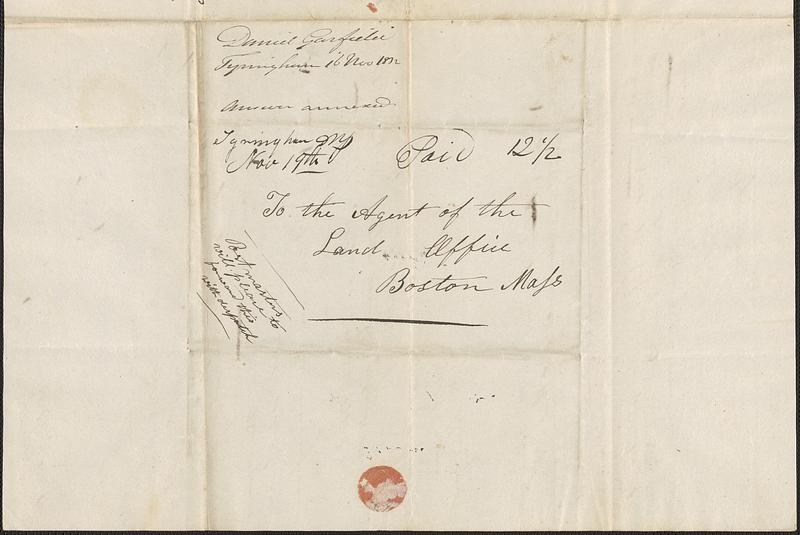 Daniel Garfield
Tyringham 16 Nov
Answer annexed
Tyringham Ms
Nov 19th
Paid 12 1/2
To the Agent of the
Land Office
Boston Mass
Postmasters
will please to
forward this
with dispatch